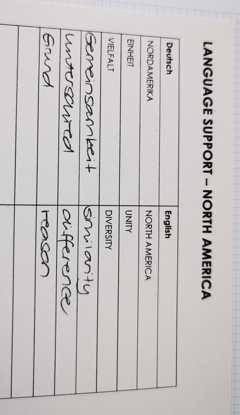 LANGUAGE SUPPORT – NORTH AMERICA
Deutsch English
NORDAMERIKA NORTH AMERICA
EINHEIT UNITY
VIELFALT DIVERSITY
Gemeinsamkeit similarity
Unterschied difference
Grund reason